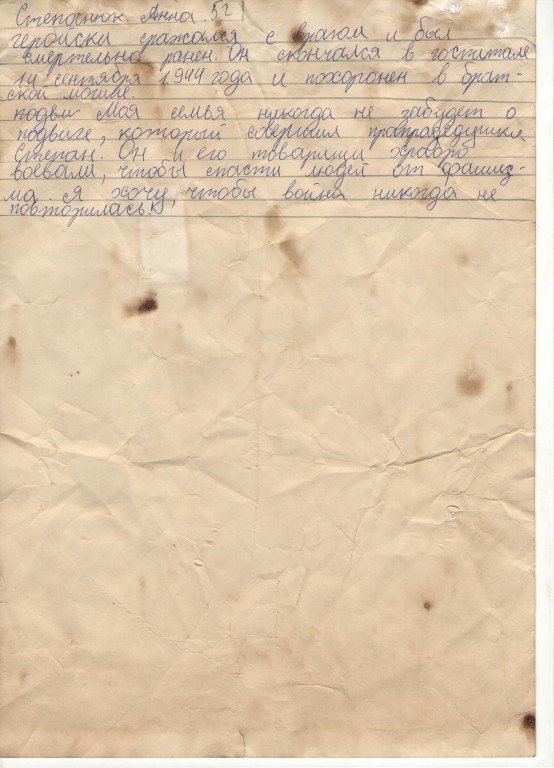 Степанюк. Анна. 52
геройски сражался с врагом и был
смертельно ранен. Он скончался в госпитале
14 сентября 1944 года и похоронен в брат-
ской могиле.
подви Моя семья никогда не забудет о
подвиге, который совершил прапрадедушка
Степан. Он и его товарищи храбро
воевали, чтобы спасти людей от фашиз-
ма. Я хочу, чтобы война никогда не
повторилась!